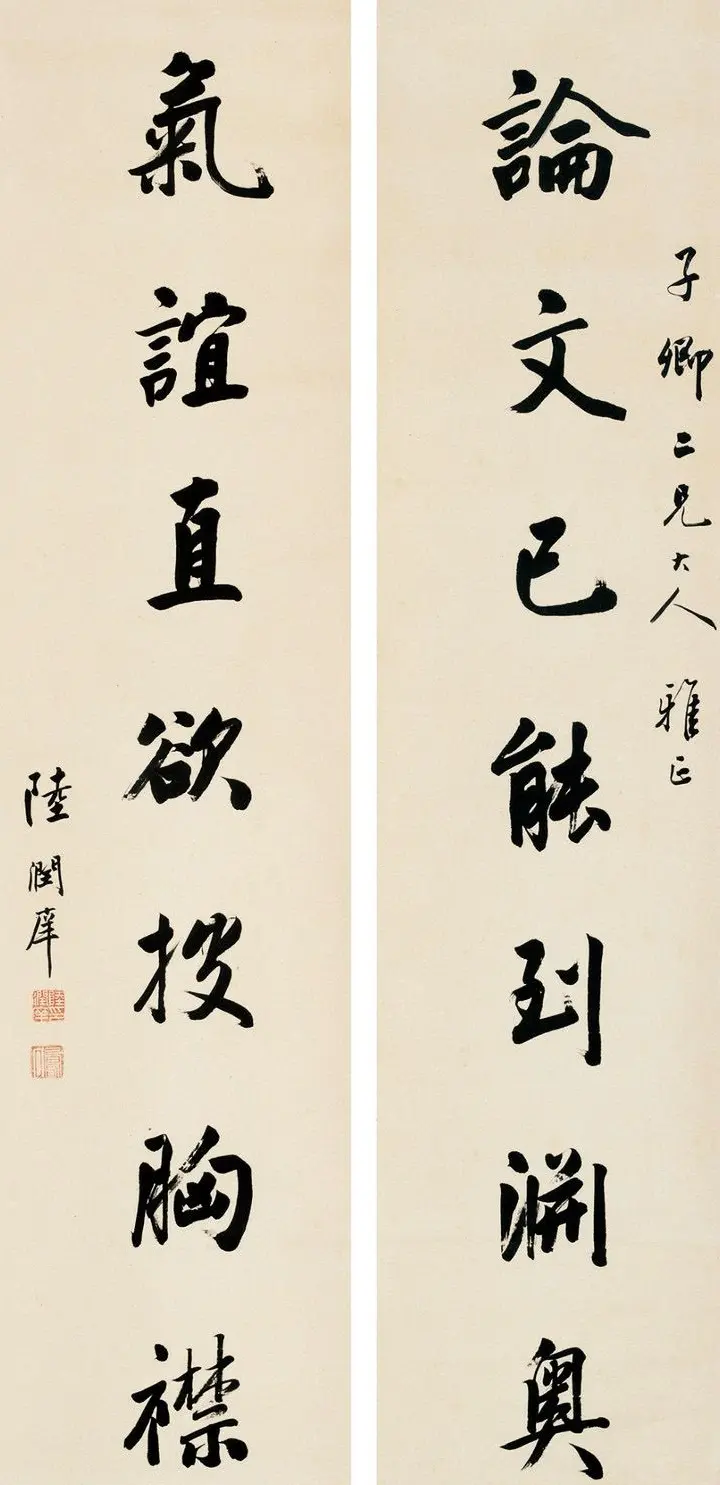 子卿二兄大人 雅正
論文已能到淵奧
氣誼直欲投胸襟
陸潤庠